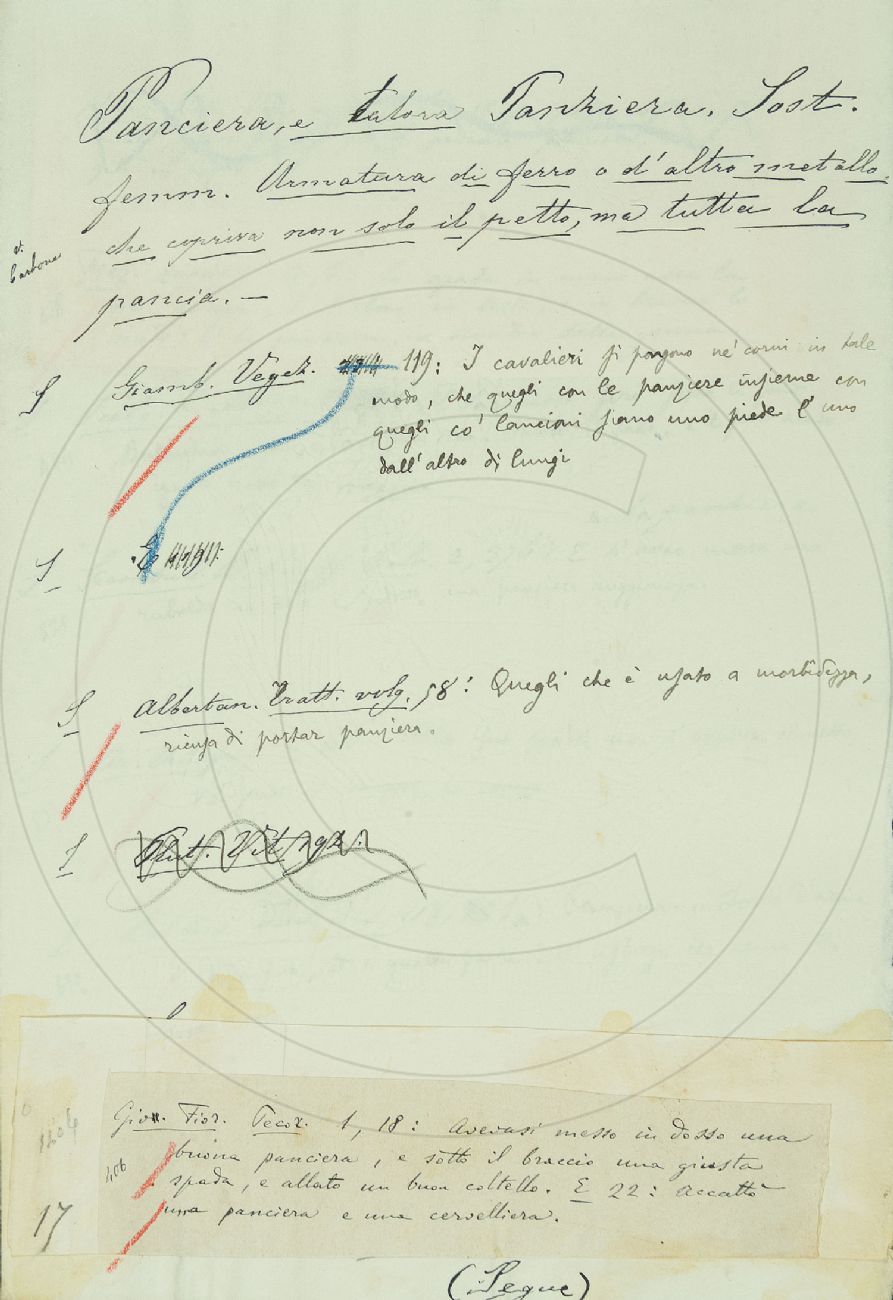 Panciera, e talora Panziera. Sost.
femm. Armatura di ferro o d'altro metallo,
che copriva non solo il petto, ma tutta la
pancia. —
Giamb. Vegez. 119: I cavalieri si pongono ne' corni in tale
modo, che quegli con le panziere insieme con
quegli co' lancioni siano uno piede l'uno
dall'altro di lungi
S
E
S
Albertan. Tratt. volg. 58: Quegli che è usato a morbidezza,
ricusa di portar panziera.
S
Plut. Vit.
S
Giov. Fior. Pecor. 1, 18: Avevasi messo in dosso una
buona panciera, e sotto il braccio una giusta
spada, e allato un buon coltello. E 22: Accattò
una panciera e una cervelliera.
106
17
(Segue)